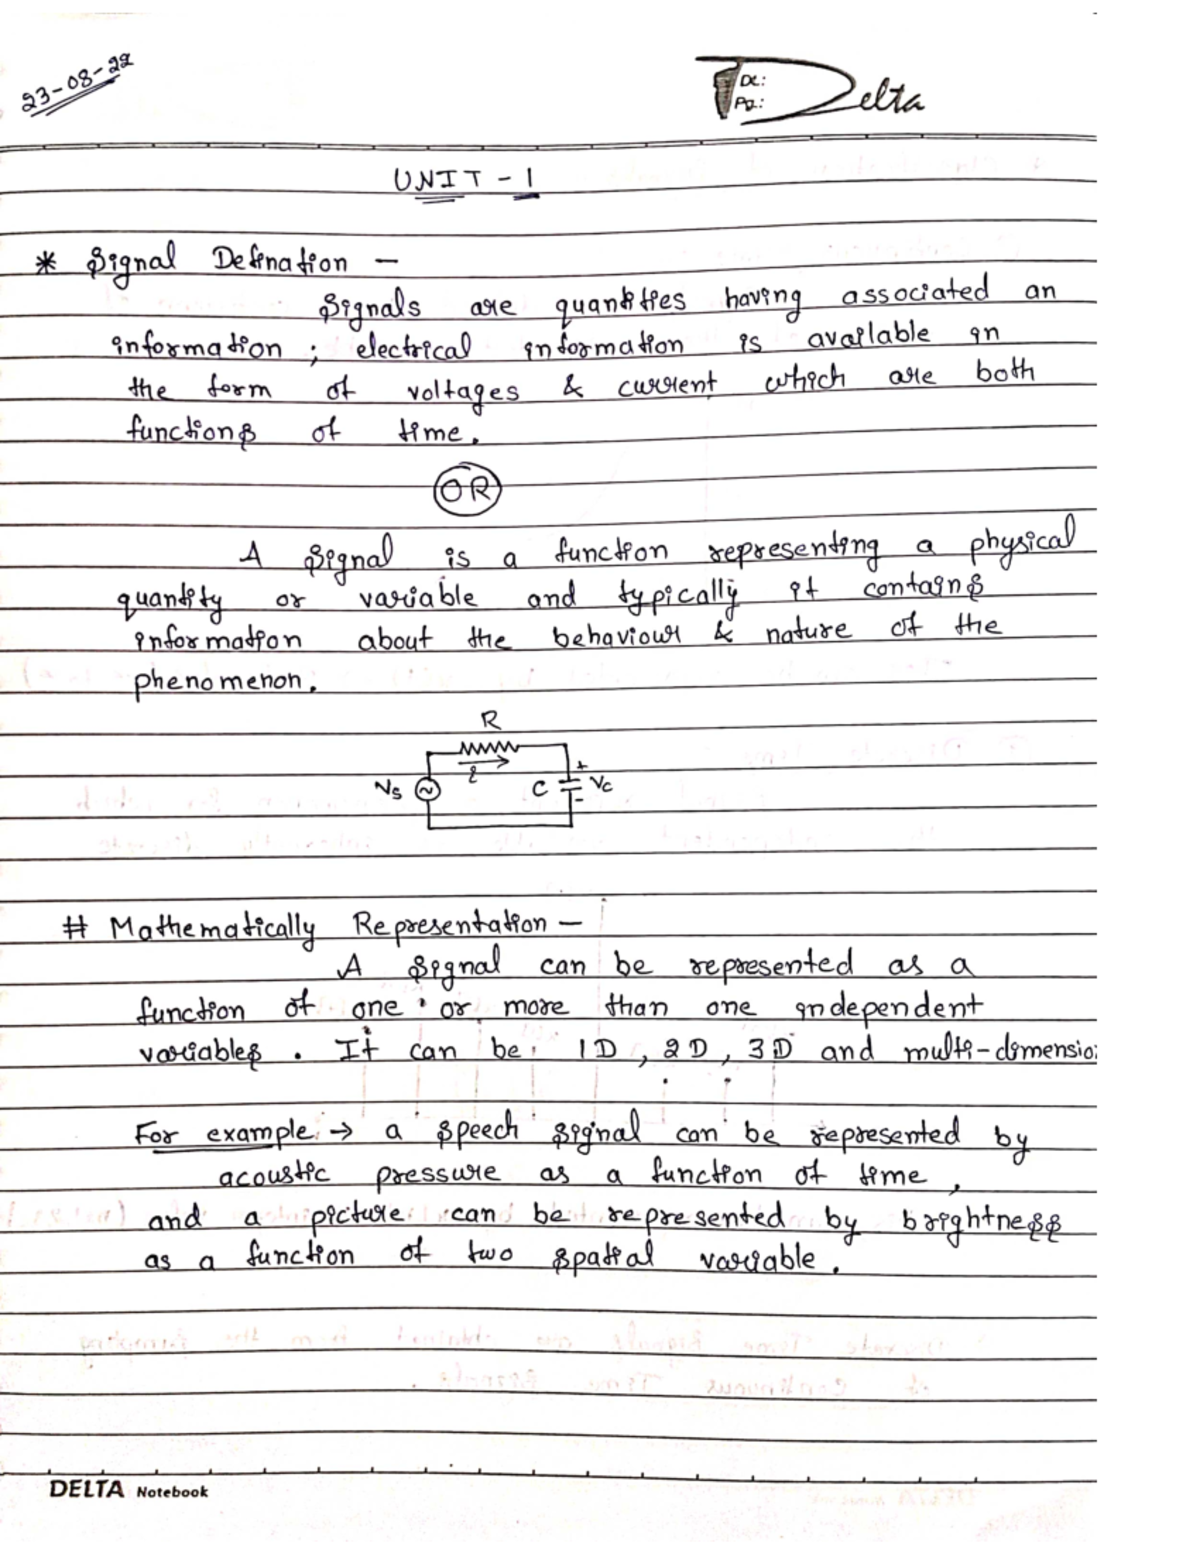 23-08-22
Dt.:
Pg.:
Delta
UNIT - 1
* Signal Defination -
Signals are quantities having associated an
information ; electrical information is available in
the form of voltages & current which are both
functions of time.
OR
A signal is a function representing a physical
quantity or variable and typically it contains
information about the behaviour & nature of the
phenomenon.
R
i
Vs C + Vc -
# Mathematically Representation -
A signal can be represented as a
function of one or more than one independent
variables . It can be 1D , 2D , 3D and multi-dimensio
For example :→ a speech signal can be represented by
acoustic pressure as a function of time ,
and a picture can be represented by brightness
as a function of two spatial variable .
DELTA Notebook